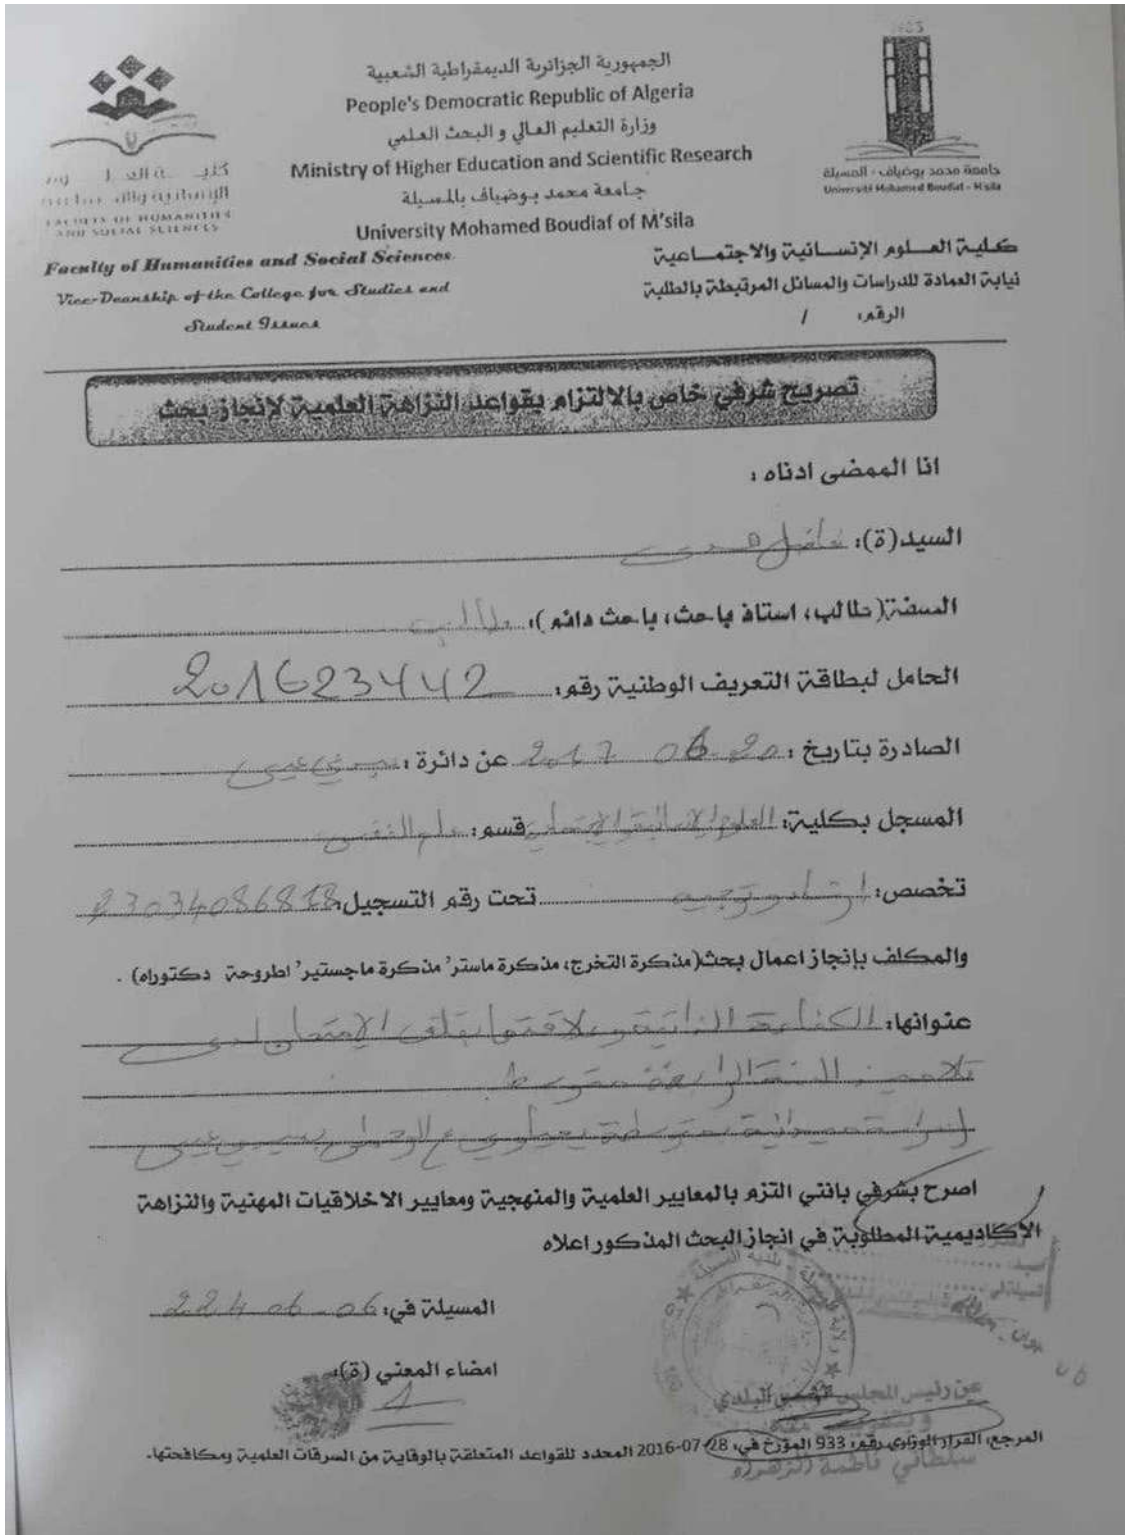 الجمهورية الجزائرية الديمقراطية الشعبية
People's Democratic Republic of Algeria
وزارة التعليم العالي و البحث العلمي
Ministry of Higher Education and Scientific Research
جامعة محمد بوضياف بالمسيلة
University Mohamed Boudiaf of M'sila
FACULTY OF HUMANITIES
AND SOCIAL SCIENCES
جامعة محمد بوضياف - المسيلة
Université Mohamed Boudiaf - M'sila
Faculty of Humanities and Social Sciences
Vice-Deanship of the College for Studies and
Student Issues
كلية العلوم الإنسانية والاجتماعية
نيابة العمادة للدراسات والمسائل المرتبطة بالطلبة
الرقم: /
تصريح شرفي خاص بالالتزام بقواعد النزاهة العلمية لانجاز بحث
انا الممضى ادناه :
السيد(ة):
الصفة(طالب، استاذ باحث، باحث دائم): طالب
الحامل لبطاقة التعريف الوطنية رقم: 201623442
الصادرة بتاريخ : 2017 06 20 عن دائرة : سيدي عيسى
المسجل بكلية: العلوم الإنسانية والاجتماعية قسم: علم النفس
تخصص: ارشاد وتوجيه تحت رقم التسجيل:
والمكلف بإنجاز اعمال بحث(مذكرة التخرج، مذكرة ماستر' مذكرة ماجستير' اطروحة دكتوراه) .
عنوانها: الكفاءة الذاتية وعلاقتها بقلق الامتحان لدى
تلاميذ السنة الرابعة متوسط
دراسة ميدانية بمتوسطة بسيدي عيسى
اصرح بشرفي بانني التزم بالمعايير العلمية والمنهجية ومعايير الاخلاقيات المهنية والنزاهة
الاكاديمية المطلوبة في انجاز البحث المذكور اعلاه
المسيلة في: 06-06-
امضاء المعني (ة):
عن رئيس المجلس الشعبي البلدي
المرجع: القرار الوزاري رقم: 933 المؤرخ في: 28-07-2016 المحدد للقواعد المتعلقة بالوقاية من السرقات العلمية ومكافحتها.
سلطاني فاطمة الزهراء